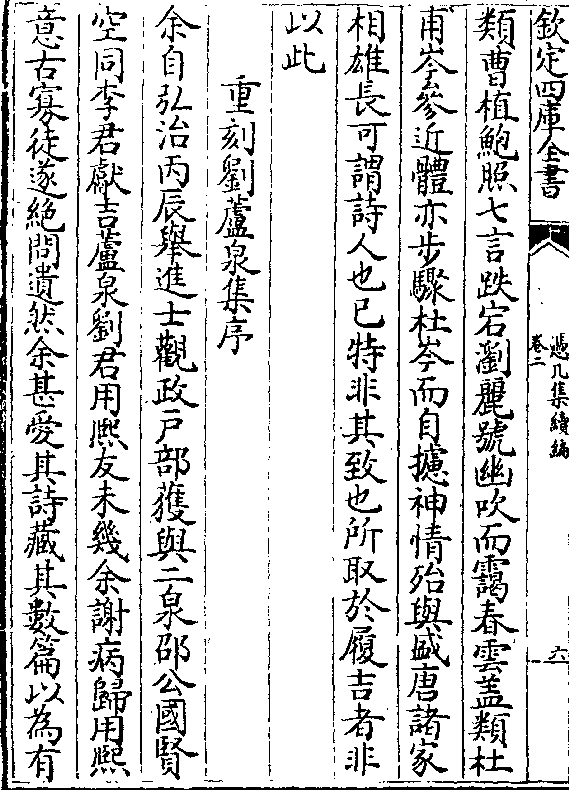 欽定四庫全書
憑几集續編
卷二
六
類曹植鮑照七言跌宕瀏麗號幽吹而靄春雲盖類杜
甫岑參近體亦步驟杜岑而自攄神情殆與盛唐諸家
相雄長可謂詩人也已特非其致也所取於履吉者非
以此
重刻劉蘆泉集序
余自弘治丙辰舉進士觀政戸部獲與二泉邵公國賢
空同李君獻吉蘆泉劉君用熈友未幾余謝病歸用熈
意古寡徒遂絶問遺然余甚愛其詩藏其數篇以為有